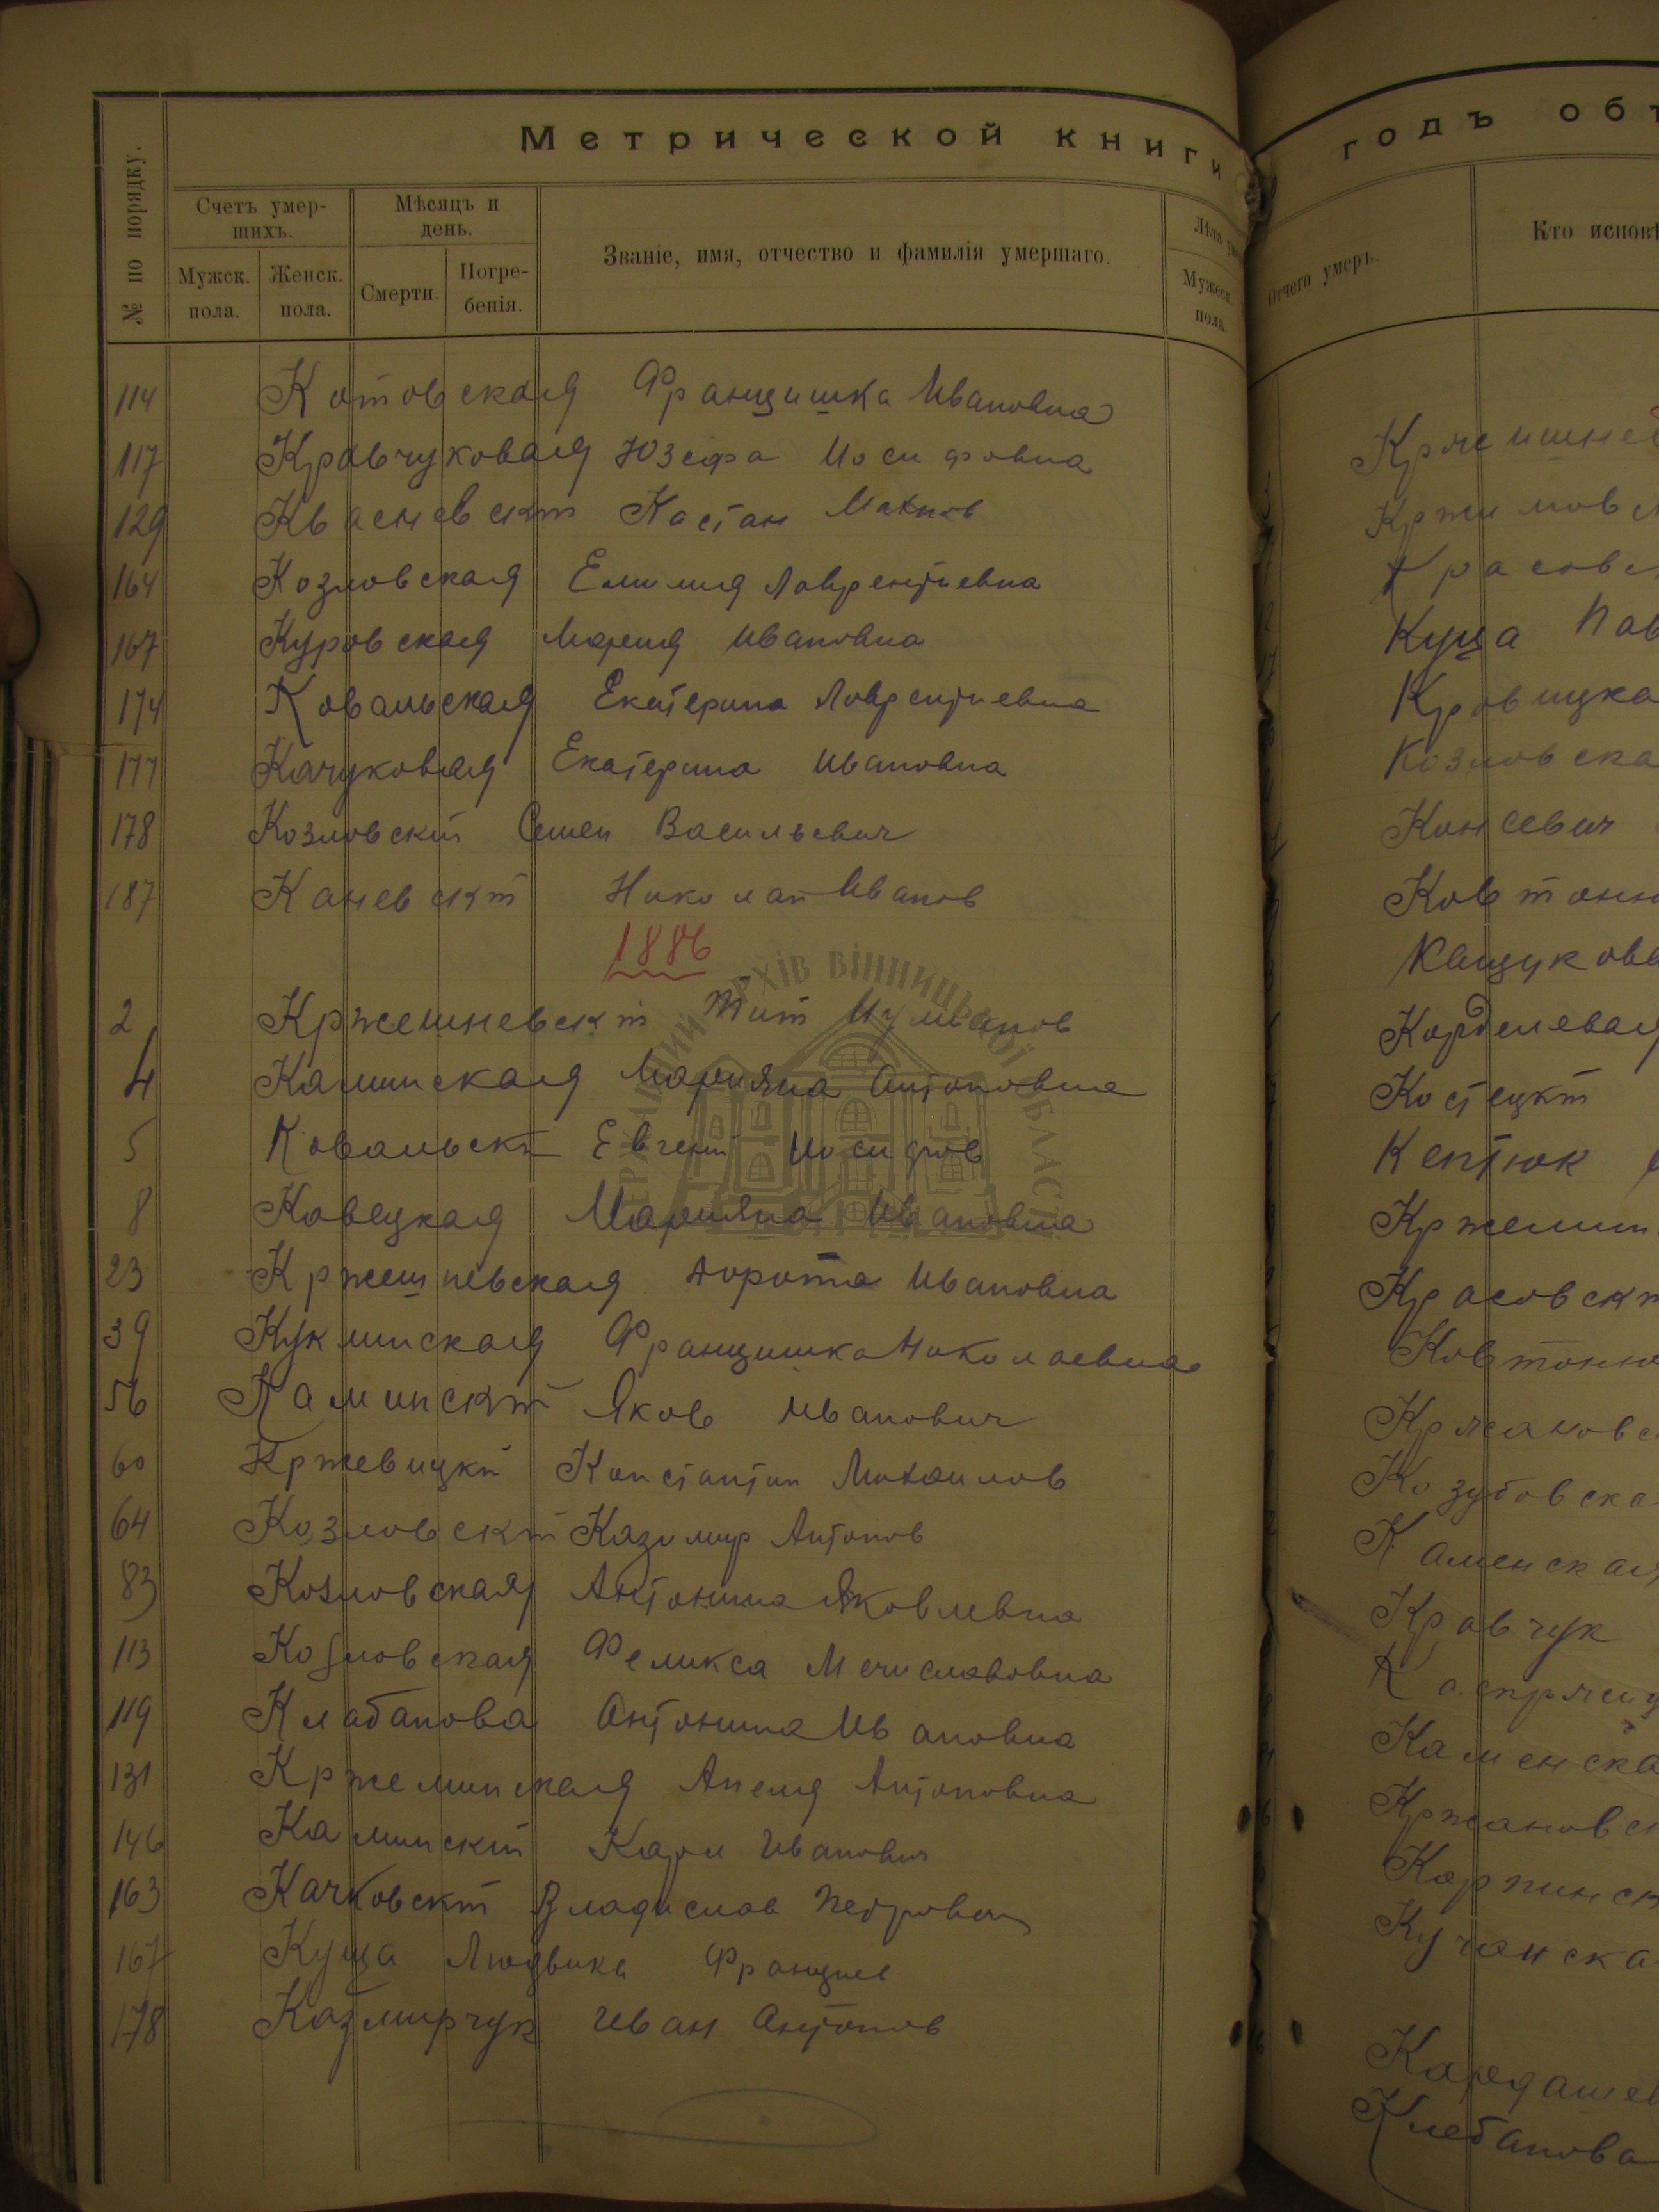 Метрической книги
№ по порядку.
Счетъ умер-
шихъ.
Мужск.
пола.
Женск.
пола.
Мѣсяцъ и
день.
Смерти.
Погре-
бенія.
Званіе, имя, отчество и фамилія умершаго.
Лѣта
Мужеск.
пола.
114 Котовская Францишка Ивановна
117 Кравчуковая Юзефа Иосифовна
129 Квасневскій
164 Козловская Емилия Лаврентиевна
167 Куровская Мария Ивановна
174 Ковальская Екатерина Лаврентиевна
177 Качуковая Екатерина Ивановна
178 Козловский Семен Васильевич
187 Каневскій Николай Иванов
1886
2 Кржешневскій Тит
4 Каминская Марияна Антоновна
5 Ковальский Евгений Иосифов
8 Кавецкая Марияна Ивановна
23 Кржешневская Дорота Ивановна
39 Францишка Николаевна
56 Каминскій Яков Иванович
60 Кржевицкий Константин Михаилов
64 Козловскій Казимир Антонов
83 Козловская Антонина Яковлевна
113 Козловская Феликса Мечиславовна
119 Клабанова Антонина Ивановна
131 Кржеминская Анеля Антоновна
146 Каминский Карл Иванович
163 Качковскій Владислав Петрович
167 Куща Людвика
178 Казмирчук Иван Антонов
ДЕРЖАВНИЙ АРХІВ ВІННИЦЬКОЇ ОБЛАСТІ
годъ объ
Отчего умеръ.
Кто исповѣ
Куща Пав
Козловска
Ковтоню
Кащукова
Корделевая
Костецкій
Кептюк
Кржемин
Красовскій
Ковтоню
Козубовска
Каменская
Кравчук
Каменска
Кржановск
Карпинск
Кучанска
Кардашев
Клебанова